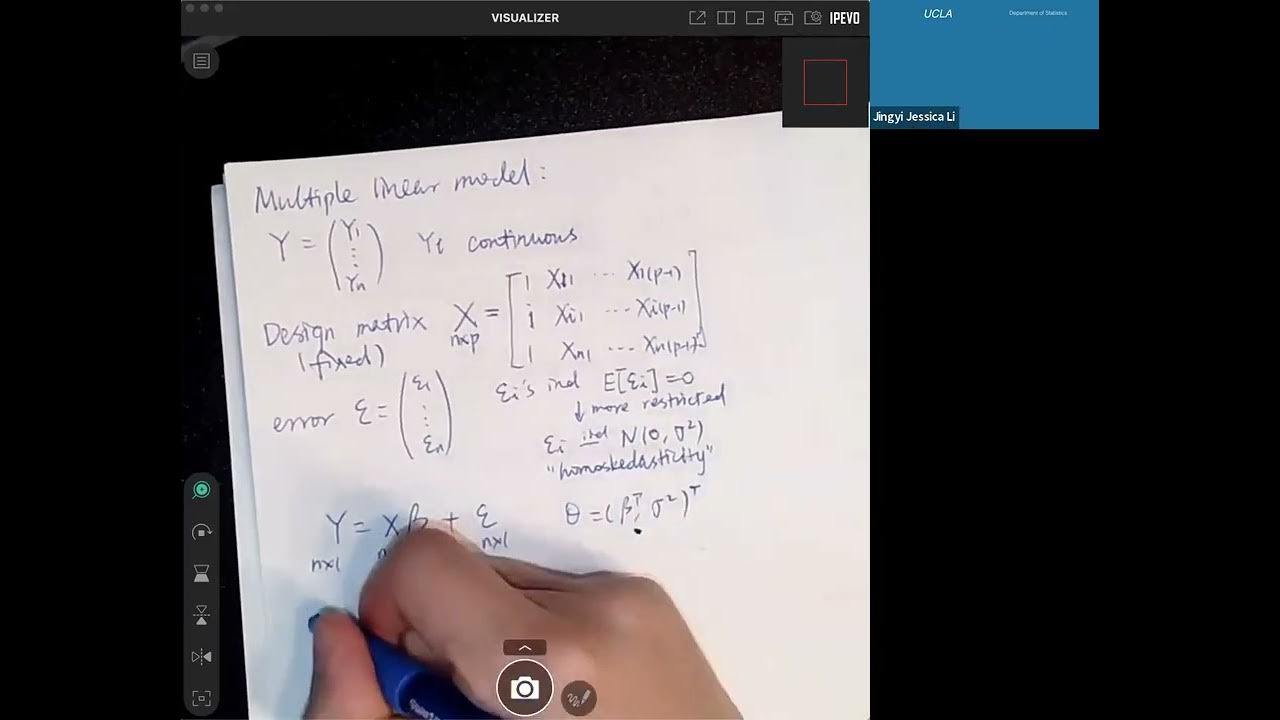 VISUALIZER
IPEVO
UCLA
Department of Statistics
Jingyi Jessica Li
Multiple linear model:
Y = (Y1 ⋮ Yn) Yi continuous
Design matrix X = [1 X11 ... X1(p-1)
(fixed) n×p i Xi1 ... Xi(p-1)
1 Xn1 ... Xn(p-1)]
error ε = (ε1 ⋮ εn) εi's ind E[εi] = 0
↓ more restricted
εi ind N(0, σ²)
"homoskedasticity"
Y = Xβ + ε θ = (βᵀ, σ²)ᵀ
n×1 n×1